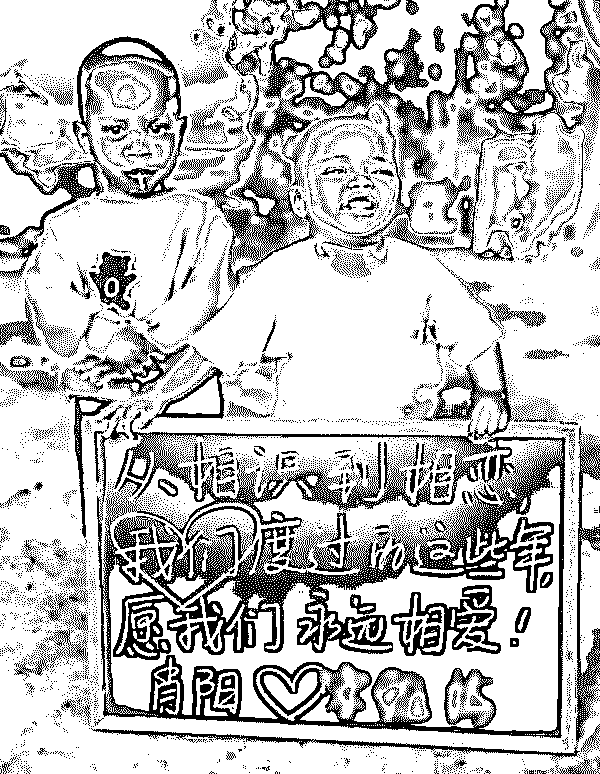 从相识到相恋,
我们度过的这些年
愿我们永远相爱!
肖阳♡